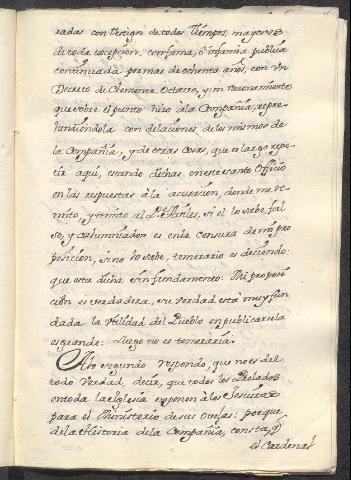 radas con testigos de todos tiempos, mayores
de toda excepcion, con fama, ò infamia publica
continuada por mas de ochenta años, con Vn
Decreto de Clemente Octavo, y un raconamiento
que sobre el punto hizo ala Compañia, repre-
hendiendola con delaciones de los mismos de
la Compañia, y de otras cosas, que es largo repe-
tir aqui, estando dichas en este santo Officio
en las respuestas à la acusacion, donde me re-
mito, y remito al Pe. Railes, si el lo sabe, fal
so, y calumniador es en la censura de mi pro
posicion, si no lo sabe, temerario es deciendo:
que esta dicha sin fundamento: Mi proposi
ción es verdadera, su verdad està muy fun
dada la vtilidad del Pueblo en publicarsela
es grande: Luego no es temeraria.
Alo segundo respondo, que no es del
todo Verdad, decir, que todos los Prelados
en toda la Iglesia exponen à los Jesuitas
para el Ministerio de sus Ovejas: porque
de la Historia de la Compañia, consta, q̃
el Cardenal